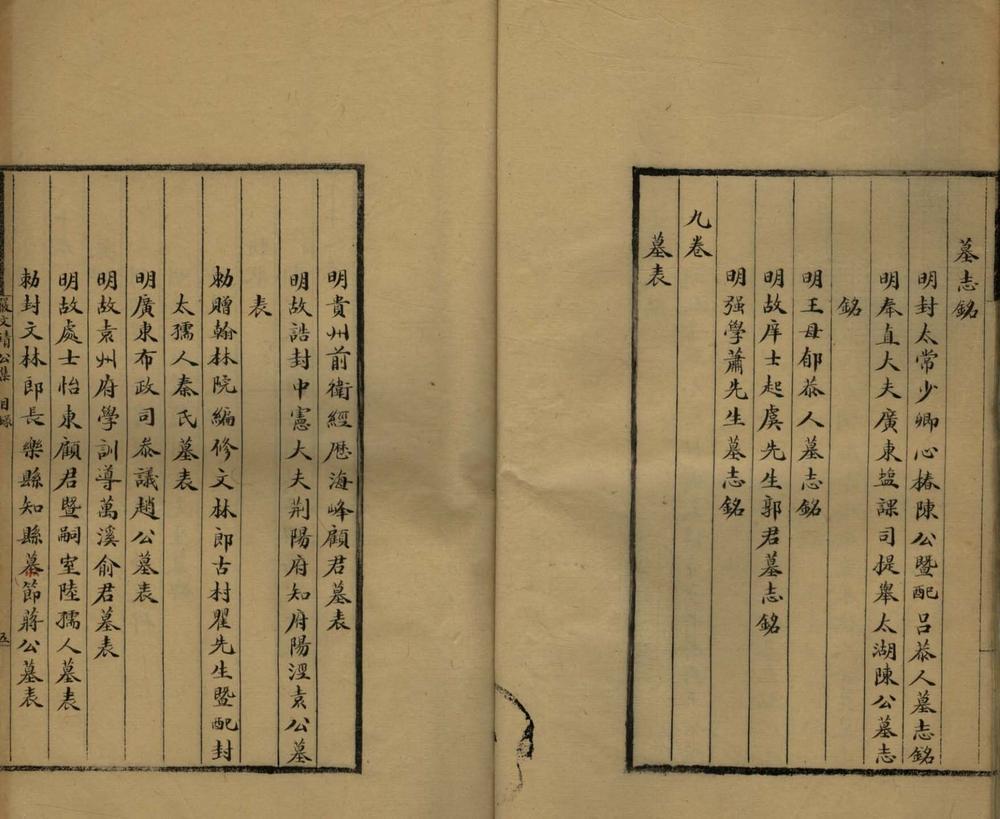 墓志銘
明封太常少卿心椿陳公暨配呂恭人墓志銘
明奉直大夫廣東塩課司提舉太湖陳公墓志
銘
明王母郁恭人墓志銘
明故庠士起虞先生郭君墓志銘
明强學蕭先生墓志銘
九卷
墓表
明貴州前衛經歷海峰顧君墓表
明故誥封中憲大夫荆陽府知府陽涇袁公墓
表
勅贈翰林院編修文林郎古村瞿先生暨配封
太孺人秦氏墓表
明廣東布政司叅議趙公墓表
明故袁州府學訓導萬溪俞君墓表
明故處士怡東顧君暨嗣室陸孺人墓表
勅封文林郎長樂縣知縣慕節蔣公墓表
嚴文靖公集 目録 五